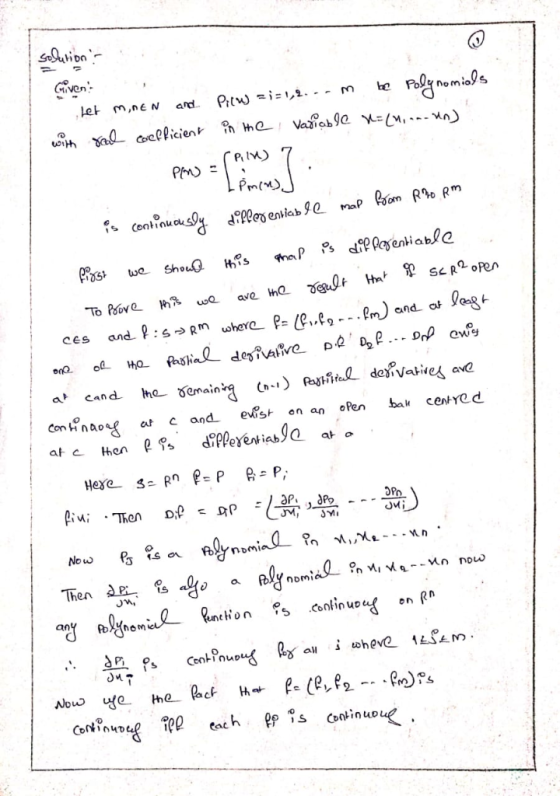 ①
Solution :-
Given:-
Let m,n∈N and Pi(x) = i=1,2. - - - m be Polynomials
with real coefficient in the variable x=(x1 .--- xn)
P(x) = [P1(x) ⋮ Pm(x)].
is continuously differentiable map from Rn to Rm
first we should this map is differentiable
To Prove this we are the result that if S⊂R2 open
c∈S and f : S→Rm where f= (f1,f2 - - -- fm) and at least
one of the Partial derivative D1f D2f ... Dnf exist
at c and the remaining (n-1) Partitial derivatives are
continuous at c and exist on an open ball centred
at c then f is differentiable at a
Here S= Rn f=P fi = Pi
fixi . Then Dif = DiP = (∂P1/∂xi , ∂P2/∂xi - - - ∂Pn/∂xi)
Now PJ is a Polynomial in x1,x2 - - - xn .
Then ∂Pi/∂xi is also a Polynomial in x1 x2 - - xn now
any Polynomial function is continuous on Rn
∴ ∂Pi/∂xj is continuous for all j where 1≤j≤m.
Now use the fact that f= (f1,f2 -- . fm) is
continuous iff each fp is continuous .